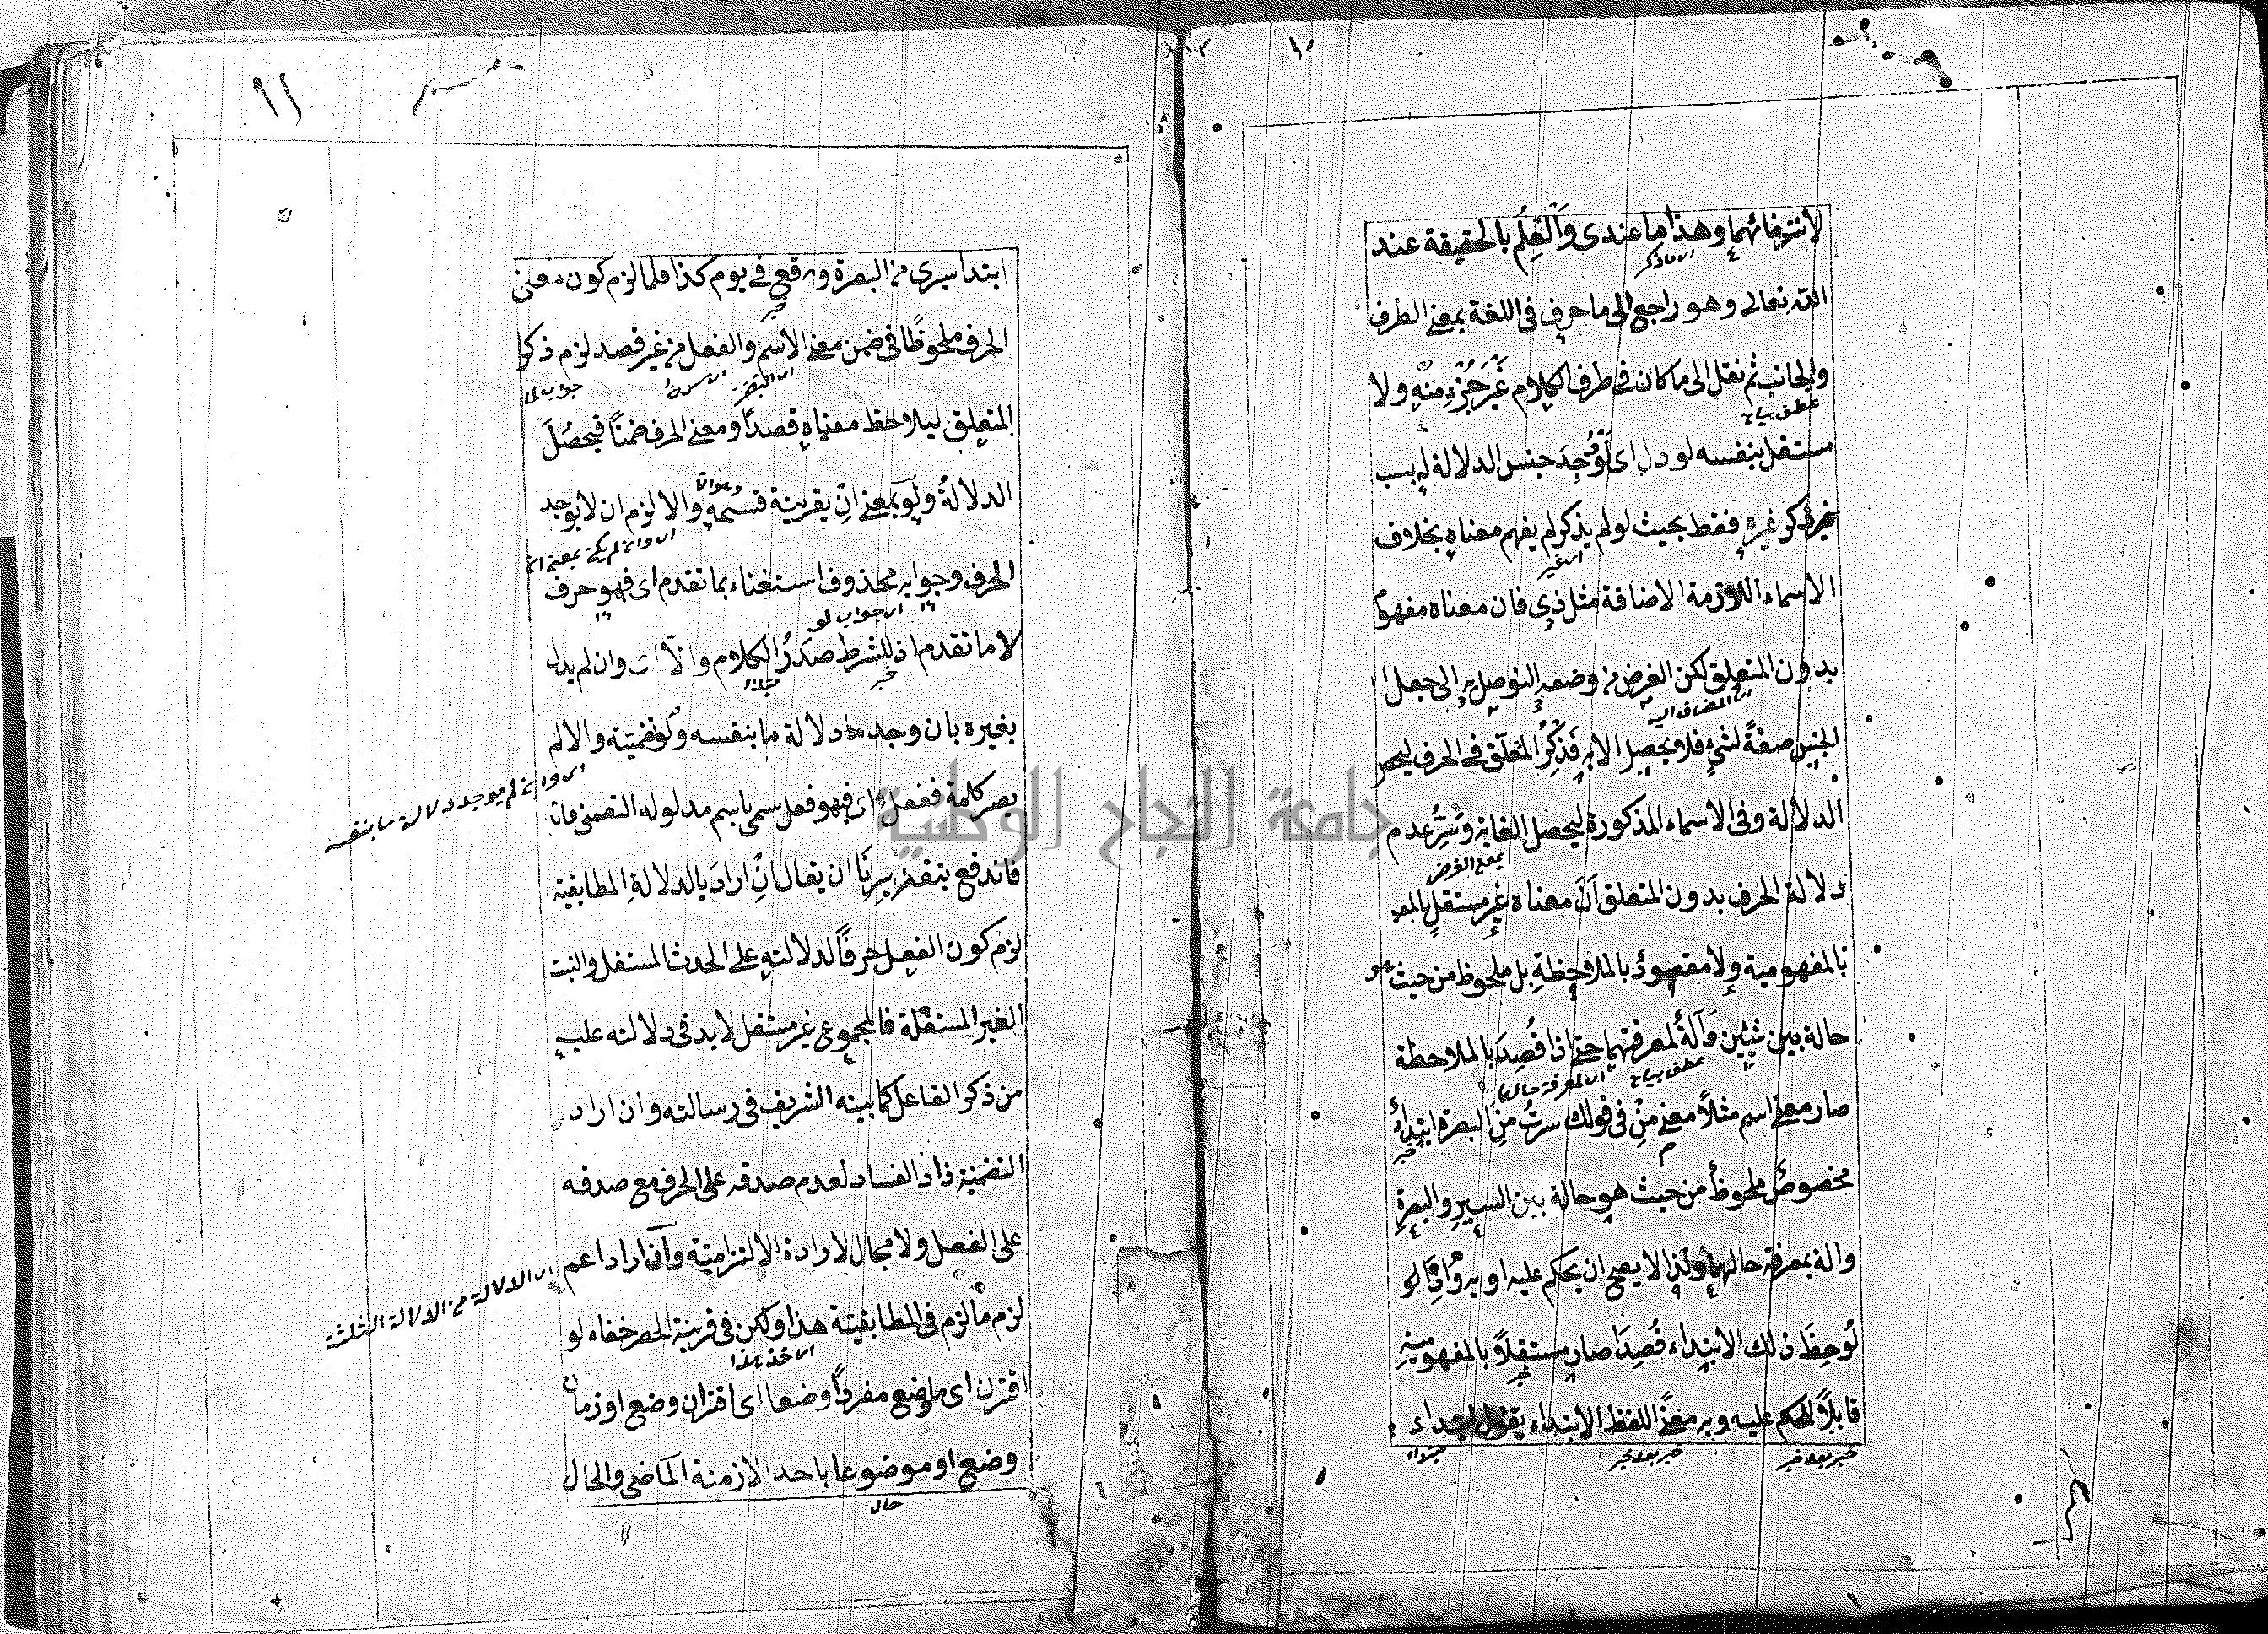 لانتفائهما وهذا ما عندى والعلم بالحقيقة عند
الله تعالى وهو راجع الى ما حرف فى اللغة بمعنى الطرف
والجانب ثم نقل الى ما كان فى طرف الكلام غير جزء منه ولا
عطف بيان
مستقل بنفسه لو دل اى لو وجد جنس الدلالة له بسبب
ذكر غيره فقط بحيث لو لم يذكر لم يفهم معناه بخلاف
الاسماء اللازمة الاضافة مثل ذى فان معناه مفهوم
بدون المتعلق لكن الغرض من وضعه التوصل به الى جعل
اى المضاف اليه
الجنس صفة لشىء فلا يحصل الا به فذكر المتعلق فى الحرف ليحصل
الدلالة وفى الاسماء المذكورة ليحصل الغاية وسر عدم
بمعنى الغرض
دلالة الحرف بدون المتعلق ان معناه غير مستقل بالمفهو
بالمفهومية ولا مقصود بالملاحظة بل ملحوظ من حيث هو
حالة بين شيئين وآلة لمعرفتهما حتى اذا قصد بالملاحظة
عطف بيان
اى لمعرفة حالهما
صار معنى اسم مثلا معنى من فى قولك سرت من البصرة ابتداء
خبر
مخصوص ملحوظ من حيث هو حالة بين السير والبصرة
والة بمعرفة حالهما ولذا لا يصح ان يحكم عليه او به واذا لو
لوحظ ذلك الابتداء قصدا صار مستقلا بالمفهومية
خبر
قابلا للحكم عليه وبه معنى اللفظ الابتداء يقول ابتداء
خبر بعد خبر
خبر بعد خبر
مبتداء
١١
ابتدا سيرى من البصرة ورفع فى يوم كذا فلما لزم كون معنى
خبر
الحرف ملحوظا فى ضمن معنى الاسم والفعل من غير قصد لزم ذكر
جواب لما
المتعلق ليلاحظ معناه قصدا ومعنى الحرف ضمنا فيحصل
الدلالة ولو بمعنى ان بقرينة قسمه والا لزم ان لا يوجد
اى وان لم يكن بمعنى ان
الحرف وجوابه محذوف استغناء بما تقدم اى فهو حرف
اى جواب لو
لا ما تقدم اذ للشرط صدر الكلام وان لم يدل
خبر
مبتداء
بغيره بان وجد دلالة ما بنفسه ولو تضمنية والا لم
اى وان لم يوجد دلالة ما بنفسه
يصر كلمة ففعل اى فهو فعل سمى باسم مدلوله التضمنى فان
فاندفع بتقديرنا ان يقال ان اراد بالدلالة المطابقية
لزم كون الفعل حرفا لدلالته على الحدث المستقل والنسبة
الغير المستقلة فالمجموع غير مستقل لا بد فى دلالته عليه
من ذكر الفاعل كما بينه الشريف فى رسالته وان اراد
التضمنية زاد الفساد لعدم صدقه على الحرف مع صدقه
على الفعل ولا مجال لارادة الالتزامية وان اراد اعم
اى الدلالة من الدلالة الثلثة
لزم ما لزم فى المطابقية هذا ولكن فى قرينة الحصر خفاء لو
اى خذ هذا
اقترن اى ما وضع مفردا وضعا اى اقتران وضع او زمان
وضع او موضوعا باحد الازمنة الماضى والحال
حال
جامعة النجاح الوطنية